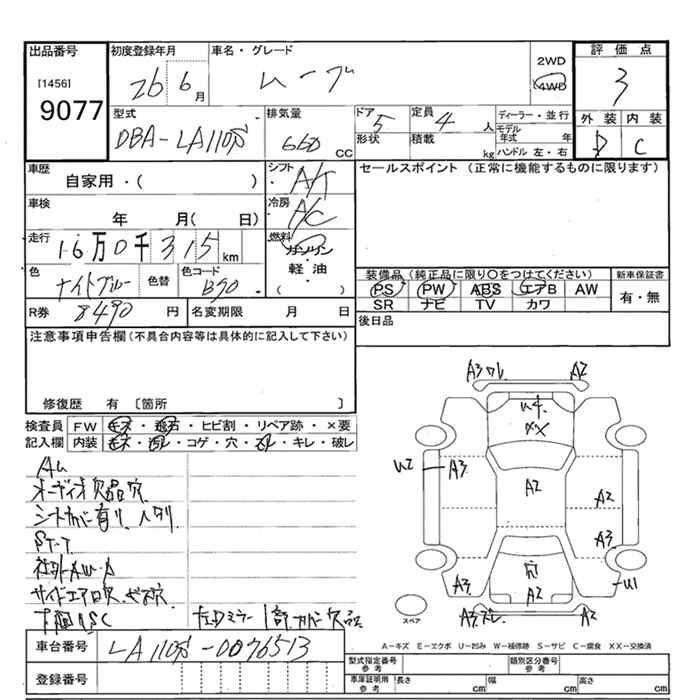 出品番号 初度登録年月 車名・グレード 2WD 評価点
[1456] 26 6月 ムーヴ 4WD 3
9077
型式 排気量 ドア 定員 ディーラー・並行 外装 内装
DBA-LA110S 660 CC 5 4人 モデル年式 年 D C
形状 積載 kg ハンドル 左・右
車歴 シフト セールスポイント (正常に機能するものに限ります)
自家用・( ) A/T
車検 冷房
年 月( 日) A/C
走行 燃料
16万0千315km ガソリン
色 色替 色コード 軽油 装備品 (純正品に限り○をつけてください) 新車保証書
ナイトブルー B90 ( ) PS PW ABS エアB AW 有・無
SR ナビ TV カワ
R券 8490円 名変期限 月 日 後日品
注意事項申告欄(不具合内容等は具体的に記入して下さい)
修復歴 有 [箇所 ]
検査員 FW キズ・飛石・ヒビ割・リペア跡・×要
記入欄 内装 キズ・汚れ・コゲ・穴・スレ・キレ・破レ
オーディオ欠品穴
シートカバー有り
社外AW
A3 A2
XX
U2 A3 A2 A2
A3
A3 穴 A2 U1
A3 A2
スペア
A-キズ E-エクボ U-凹み W-補修跡 S-サビ C-腐食 XX-交換済
車台番号 LA110S-0076513
型式指定番号 参考 類別区分番号 参考
登録番号 車庫証明用 参考 長さ cm 幅 cm 高さ cm